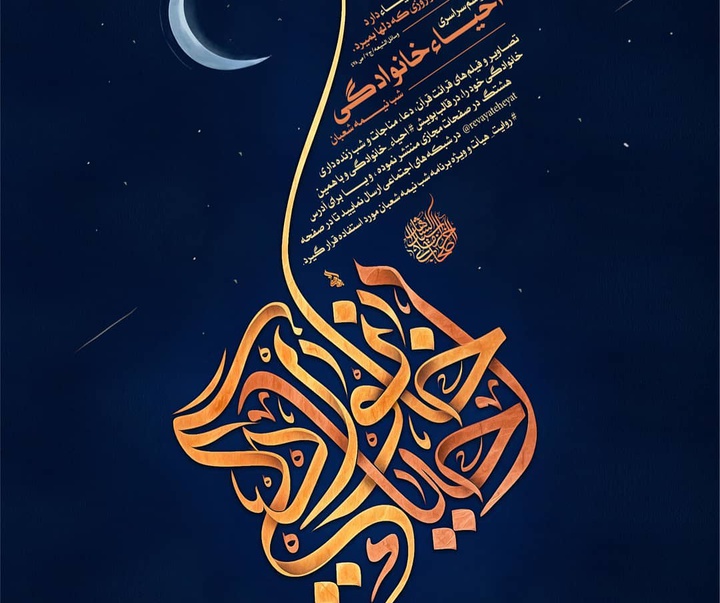 روزی که دلها بمیرد.
احیاء خانوادگی
شب نیمه شعبان
تصاویر و فیلم های قرائت قرآن، دعا، مناجات و شب زنده داری
خانوادگی خود را، در قالب پویش # احیاء_خانوادگی و با همین
هشتگ در صفحات مجازی منتشر نموده ، و یا برای آدرس
@revayateheyat در شبکه های اجتماعی ارسال نمایید تا در صفحه
# روایت_هیات و ویژه برنامه شب نیمه شعبان مورد استفاده قرار گیرد.
احیاء خانوادگی